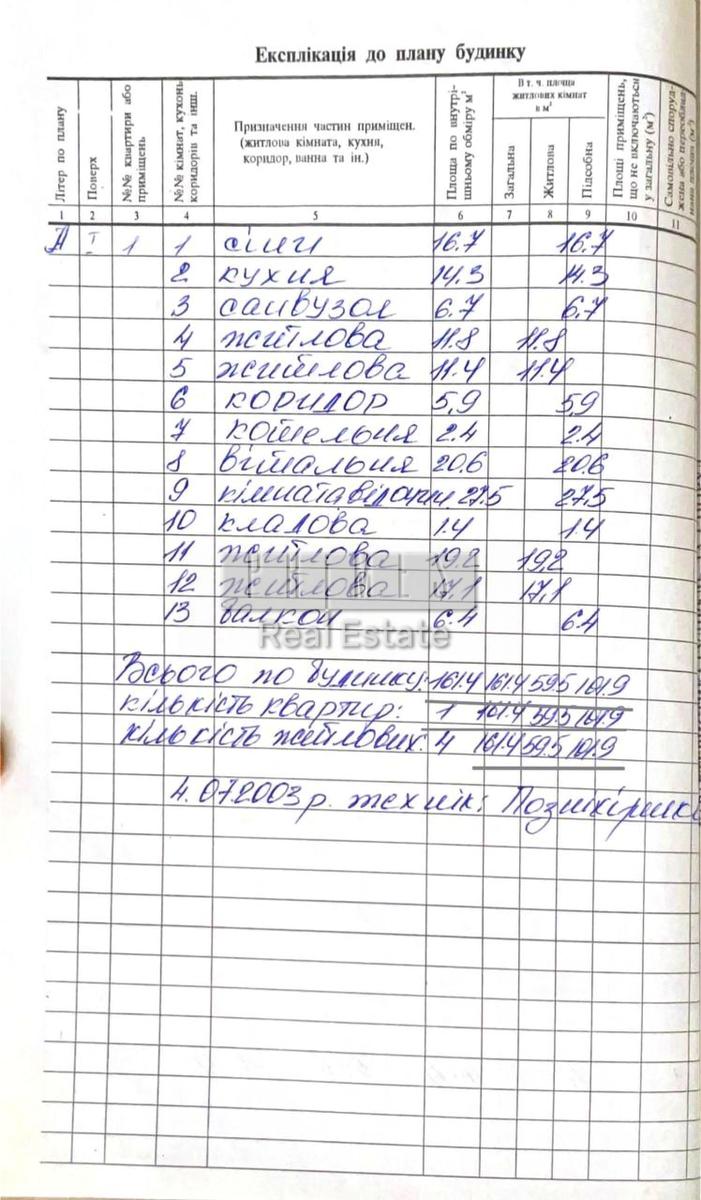 Експлікація до плану будинку
Літер по плану
Поверх
№№ квартири або приміщень
№№ кімнат, кухонь, коридорів та інш.
Призначення частин приміщен.
(житлова кімната, кухня,
коридор, ванна та ін.)
Площа по внутрі-
шньому обміру м²
В т. ч. площа
житлових кімнат
в м²
Загальна
Житлова
Підсобна
Площі приміщень,
що не включаються
у загальну (м²)
Самовільно споруд-
жена або переоблад-
нана площа (м²)
1 2 3 4 5 6 7 8 9 10 11
А І 1 1 сіни 16.7 16.7
2 кухня 14.3 14.3
3 санвузол 6.7 6.7
4 житлова 11.8 11.8
5 житлова 11.4 11.4
6 коридор 5,9 5,9
7 котельня 2.4 2.4
8 вітальня 20.6 20.6
9 кімната відпочин. 27.5 27,5
10 кладова 1.4 1.4
11 житлова 19.2 19.2
12 житлова 17,1 17,1
13 балкон 6.4 6.4
Real Estate
Всього по будинку: 161.4 161.4 59.5 101.9
кількість квартир: 1 161.4 59.5 101.9
кількість житлових: 4 161.4 59.5 101.9
4.07.2003 р. технік: